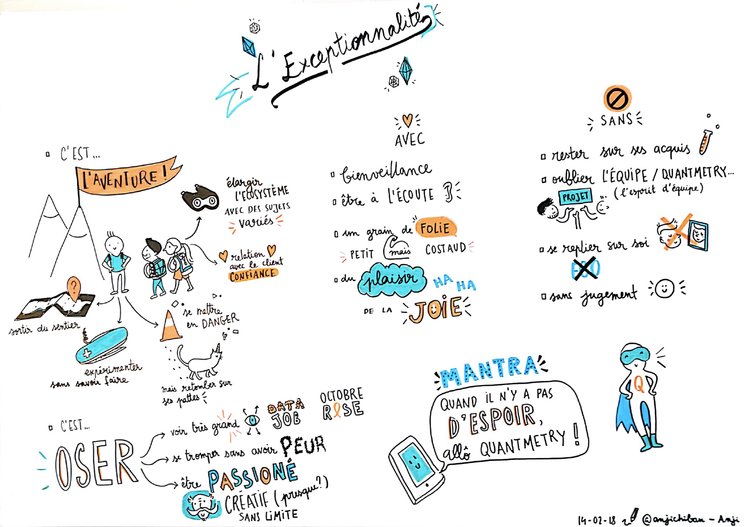 L'Exceptionnalité
C'EST...
L'AVENTURE !
élargir
l'ECOSYSTÈME
AVEC DES SUJETS
VARIÉS
relation
avec le client
CONFIANCE
?
sortir du sentier
expérimenter
sans savoir faire
se mettre
en DANGER
mais retomber sur
ses pattes !
AVEC
bienveillance
être à L'ÉCOUTE
un grain de FOLIE
PETIT mais COSTAUD
du plaisir
HA HA
DE LA JOIE
SANS
rester sur ses acquis
oublier L'ÉQUIPE / QUANTMETRY...
(l'esprit d'équipe)
PROJET
se replier sur soi
sans jugement
C'EST...
OSER
voir très grand
DATA
JOB
OCTOBRE
ROSE
se tromper sans avoir PEUR
être PASSIONÉ
CRÉATIF (presque?)
SANS LIMITE
MANTRA
QUAND IL N'Y A PAS
D'ESPOIR,
allô QUANTMETRY !
Q
14-02-18 @anjichibau - Anji